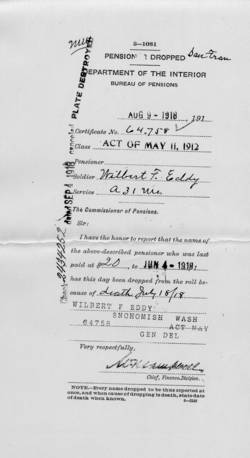 3—1081
San Fran
PENSIONER DROPPED
DEPARTMENT OF THE INTERIOR
BUREAU OF PENSIONS
AUG 9 - 1918, 191
Certificate No. 64,758
Class ACT OF MAY 11, 1912
Pensioner
Soldier Wilbert F. Eddy
Service A 31 Me.
The Commissioner of Pensions.
Sir:
I have the honor to report that the name of
the above-described pensioner who was last
paid at $20 to JUN 4 - 1918,
has this day been dropped from the roll be-
cause of death July 18/18
WILBERT F EDDY
SNOHOMISH WASH
64758 ACT MAY
GEN DEL
Very respectfully,
Chief, Finance Division.
NOTE.—Every name dropped to be thus reported at
once, and when cause of dropping is death, state date
of death when known.
PLATE DESTROYED
SEP 4 1918